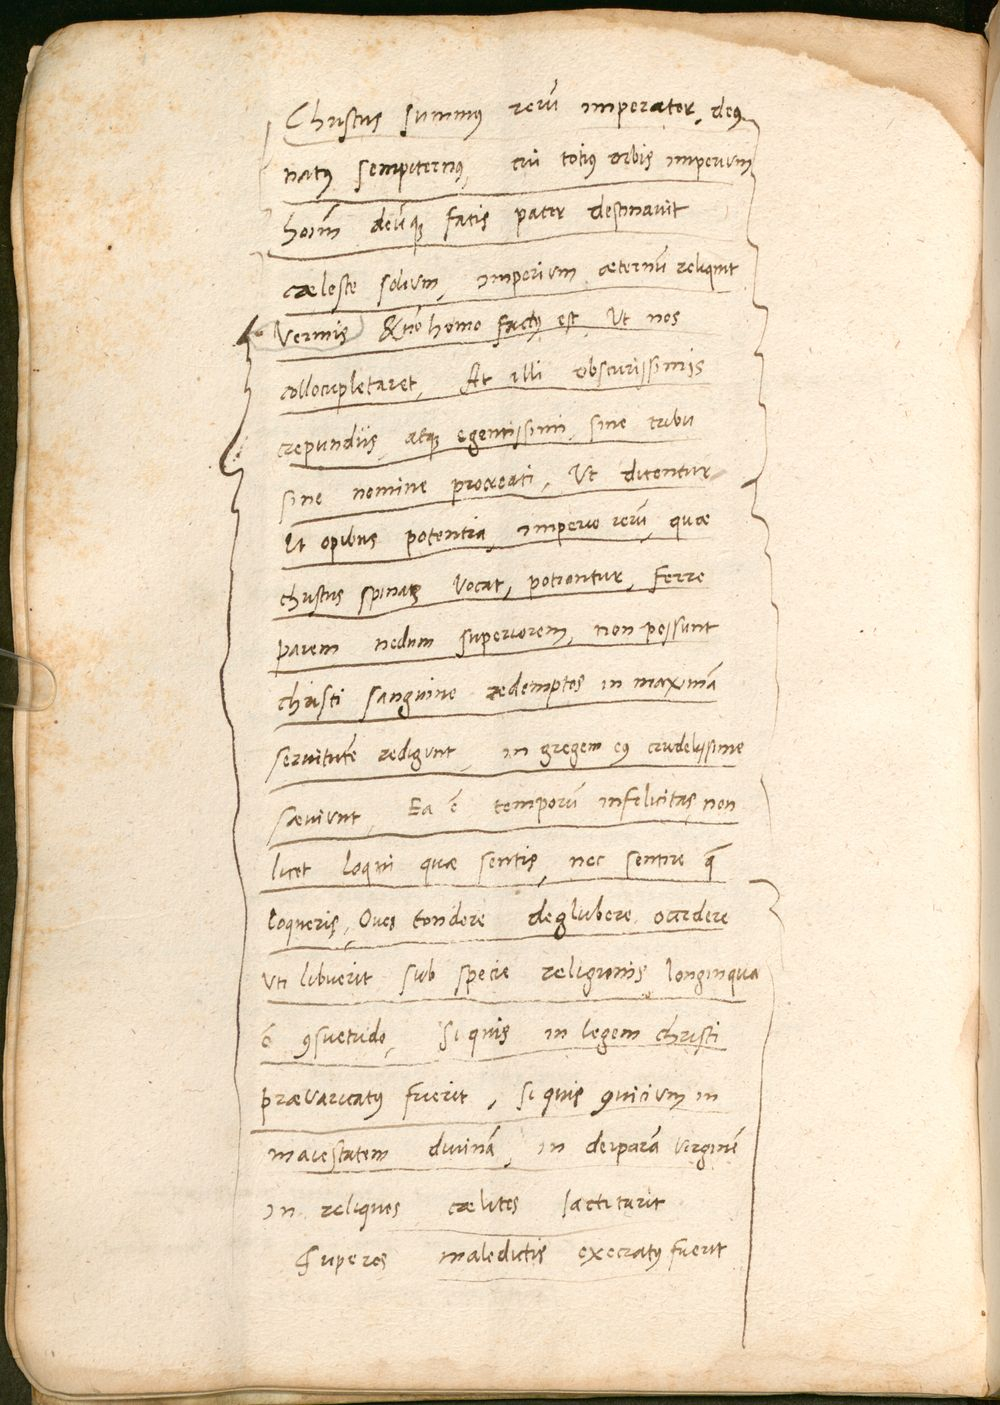 Christus summus rerū imperator, deq
natus sempiternus, cui totius orbis imperium
hoīm deūq; fatis pater destinavit
cæleste solium, imperium æternū reliquit
Vermis & nō homo factus est Ut nos
collocupletaret, At illi obscurissimis
crepundiis, atq; egentissimi, sine tribu
sine nomine procreati, Ut ditentur
Ut opibus potentia, imperio rerū, quæ
christus spinas vocat, potiantur, Ferre
parem nedum superiorem, non possunt
christi sanguine redemptos in maximā
servitutē redigunt, in gregem eius crudelissime
sæviunt, Ea ē temporū infelicitas, non
licet loqui quæ sentis, nec sentire q̄
loqueris, Oves tondere deglubere occidere
Uti libuerit sub specie religionis longinqua
ē ꝯsuetudo, Si quis in legem christi
prævaricatus fuerit, si quis ꝯvicium in
maiestatem divinā, in deiparā virginē
in reliquos cælites iactitarit
Superos maledictis execratus fuerit